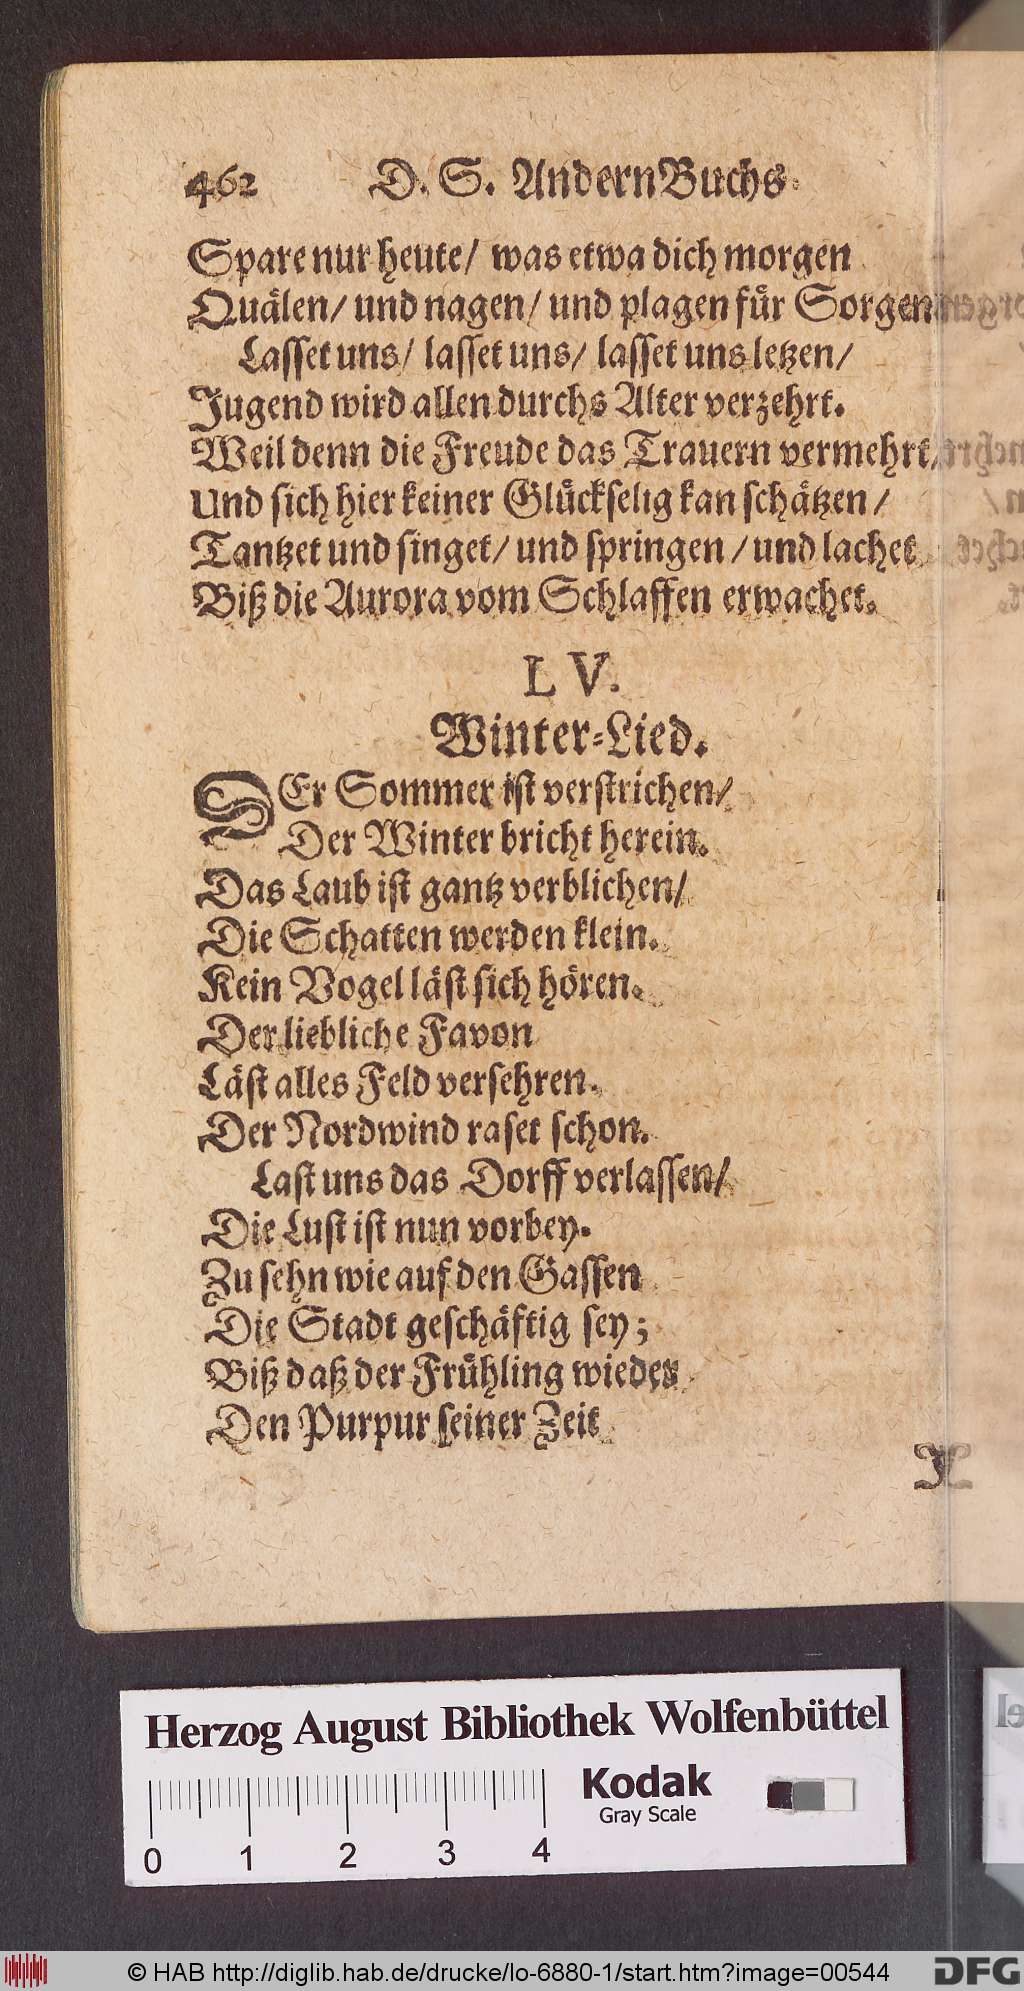 462 D. S. Andern Buchs
Spare nur heute/ was etwa dich morgen
Quälen/ und nagen/ und plagen für Sorgen
Lasset uns/ lasset uns/ lasset uns letzen/
Jugend wird allen durchs Alter verzehrt.
Weil denn die Freude das Trauern vermehrt/
Und sich hier keiner Glückselig kan schätzen/
Tantzet und singet/ und springen/ und lachet
Biß die Aurora vom Schlaffen erwachet.
LV.
Winter-Lied.
DEr Sommer ist verstrichen/
Der Winter bricht herein.
Das Laub ist gantz verblichen/
Die Schatten werden klein.
Kein Vogel läst sich hören.
Der liebliche Favon
Läst alles Feld versehren.
Der Nordwind raset schon.
Last uns das Dorff verlassen/
Die Lust ist nun vorbey.
Zu sehn wie auf den Gassen
Die Stadt geschäftig sey;
Biß daß der Frühling wieder
Den Purpur seiner Zeit
Herzog August Bibliothek Wolfenbüttel
Kodak
Gray Scale
0 1 2 3 4
© HAB http://diglib.hab.de/drucke/lo-6880-1/start.htm?image=00544
DFG